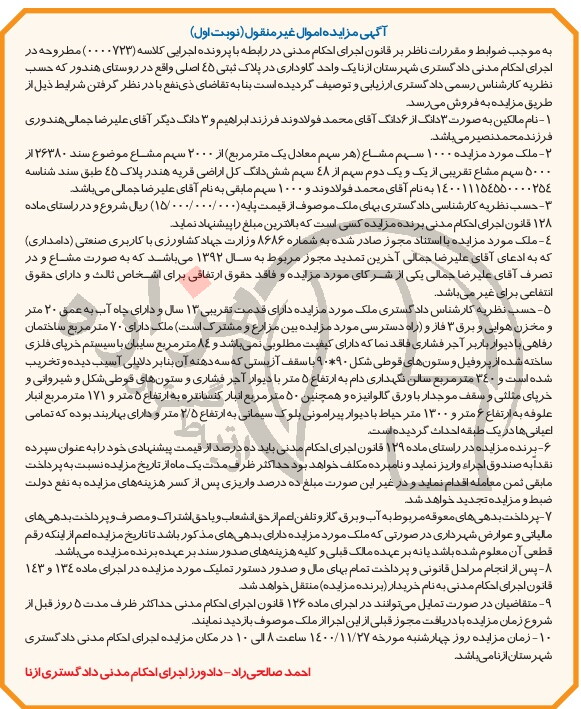 آگهی مزایده اموال غیرمنقول (نوبت اول)
به موجب ضوابط و مقررات ناظر بر قانون اجرای احکام مدنی در رابطه با پرونده اجرایی کلاسه (۰۰۰۰۷۲۳) مطروحه در
اجرای احکام مدنی دادگستری شهرستان ازنا یک واحد گاوداری در پلاک ثبتی ۴۵ اصلی واقع در روستای هندور که حسب
نظریه کارشناس رسمی دادگستری ارزیابی و توصیف گردیده است بنا به تقاضای ذی‌نفع با در نظر گرفتن شرایط ذیل از
طریق مزایده به فروش می‌رسد.
۱- نام مالکین به صورت ۳دانگ از ۶دانگ آقای محمد فولادوند فرزند ابراهیم و ۳ دانگ دیگر آقای علیرضا جمالی‌هندوری
فرزند محمدنصیر می‌باشد.
۲- ملک مورد مزایده ۱۰۰۰ سهم مشاع (هر سهم معادل یک مترمربع) از ۲۰۰۰ سهم مشاع موضوع سند ۲۶۳۸۰ از
۵۰۰۰ سهم مشاع تقریبی از یک و یک دوم سهم از ۴۸ سهم شش‌دانگ کل اراضی قریه هندر پلاک ۴۵ طبق سند شناسه
۱۴۰۰۱۱۱۵۴۵۵۰۰۰۰۲۵۴ به نام آقای محمد فولادوند و ۱۰۰۰ سهم مابقی به نام آقای علیرضا جمالی می‌باشد.
۳- حسب نظریه کارشناسی دادگستری بهای ملک موصوف از قیمت پایه (۱۵/۰۰۰/۰۰۰/۰۰۰) ریال شروع و در راستای ماده
۱۲۸ قانون اجرای احکام مدنی برنده مزایده کسی است که بالاترین مبلغ را پیشنهاد نماید.
۴- ملک مورد مزایده با استناد مجوز صادر شده به شماره ۸۶۸۶ وزارت جهاد کشاورزی با کاربری صنعتی (دامداری)
که به ادعای آقای علیرضا جمالی آخرین تمدید مجوز مربوط به سال ۱۳۹۲ می‌باشد که به صورت مشاع و در
تصرف آقای علیرضا جمالی یکی از شرکای مورد مزایده و فاقد حقوق ارتفاقی برای اشخاص ثالث و دارای حقوق
انتفاعی برای غیر می‌باشد.
۵- حسب نظریه کارشناس دادگستری ملک مورد مزایده دارای قدمت تقریبی ۱۳ سال و دارای چاه آب به عمق ۲۰ متر
و مخزن هوایی و برق ۳ فاز و (راه دسترسی مورد مزایده بین مزارع و مشترک است) ملک دارای ۷۰ مترمربع ساختمان
رفاهی با دیوار باربر آجر فشاری فاقد نما که دارای کیفیت مطلوبی نمی‌باشد و ۸۴ مترمربع سایبان با سیستم خرپای فلزی
ساخته شده از پروفیل و ستون‌های قوطی شکل ۹۰*۹۰ با سقف آزبستی که سه دهنه آن بنابر دلایلی آسیب دیده و تخریب
شده است و ۳۴۰ مترمربع سالن نگهداری دام به ارتفاع ۵ متر با دیوار آجر فشاری و ستون‌های قوطی‌شکل و شیروانی و
خرپای مثلثی و سقف موجدار با ورق گالوانیزه و همچنین ۵۰ مترمربع انبار کنسانتره به ارتفاع ۵ متر و ۱۷۱ مترمربع انبار
علوفه به ارتفاع ۶ متر و ۱۳۰۰ متر حیاط با دیوار پیرامونی بلوک سیمانی به ارتفاع ۲/۵ متر و دارای بهاربند بوده که تمامی
اعیانی‌ها در یک طبقه احداث گردیده است.
۶- برنده مزایده در راستای ماده ۱۲۹ قانون اجرای احکام مدنی باید ده درصد از قیمت پیشنهادی خود را به عنوان سپرده
نقداً به صندوق اجراء واریز نماید و نامبرده مکلف خواهد بود حداکثر ظرف مدت یک ماه از تاریخ مزایده نسبت به پرداخت
مابقی ثمن معامله اقدام نماید و در غیر این صورت مبلغ ده درصد واریزی پس از کسر هزینه‌های مزایده به نفع دولت
ضبط و مزایده تجدید خواهد شد.
۷- پرداخت بدهی‌های معوقه مربوط به آب و برق، گاز و تلفن اعم از حق انشعاب و یا حق اشتراک و مصرف و پرداخت بدهی‌های
مالیاتی و عوارض شهرداری در صورتی که ملک مورد مزایده دارای بدهی‌های مذکور باشد تا تاریخ مزایده اعم از اینکه رقم
قطعی آن معلوم شده باشد یا نه بر عهده مالک قبلی و کلیه هزینه‌های صدور سند بر عهده برنده مزایده می‌باشد.
۸- پس از انجام مراحل قانونی و پرداخت تمام بهای مال و صدور دستور تملیک مورد مزایده در اجرای ماده ۱۳۴ و ۱۴۳
قانون اجرای احکام مدنی به نام خریدار (برنده مزایده) منتقل خواهد شد.
۹- متقاضیان در صورت تمایل می‌توانند در اجرای ماده ۱۲۶ قانون اجرای احکام مدنی حداکثر ظرف مدت ۵ روز قبل از
شروع زمان مزایده با دریافت مجوز قبلی از این اجرا از ملک موصوف بازدید نمایند.
۱۰- زمان مزایده روز چهارشنبه مورخه ۱۴۰۰/۱۱/۲۷ ساعت ۸ الی ۱۰ در مکان مزایده اجرای احکام مدنی دادگستری
شهرستان ازنا می‌باشد.
احمد صالحی‌راد- دادورز اجرای احکام مدنی دادگستری ازنا